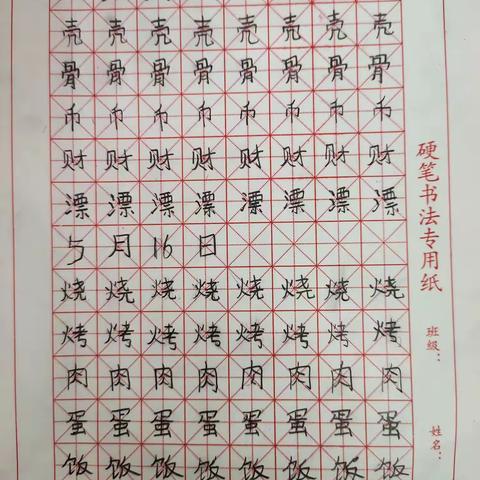 壳壳壳壳壳壳壳壳
骨骨骨骨骨骨骨骨
币币币币币币币币
财财财财财财财财
漂漂漂漂漂漂漂漂
5月16日
烧烧烧烧烧烧烧烧
烤烤烤烤烤烤烤烤
肉肉肉肉肉肉肉肉
蛋蛋蛋蛋蛋蛋蛋蛋
饭饭饭饭饭饭饭饭
硬笔书法专用纸
班级：
姓名：